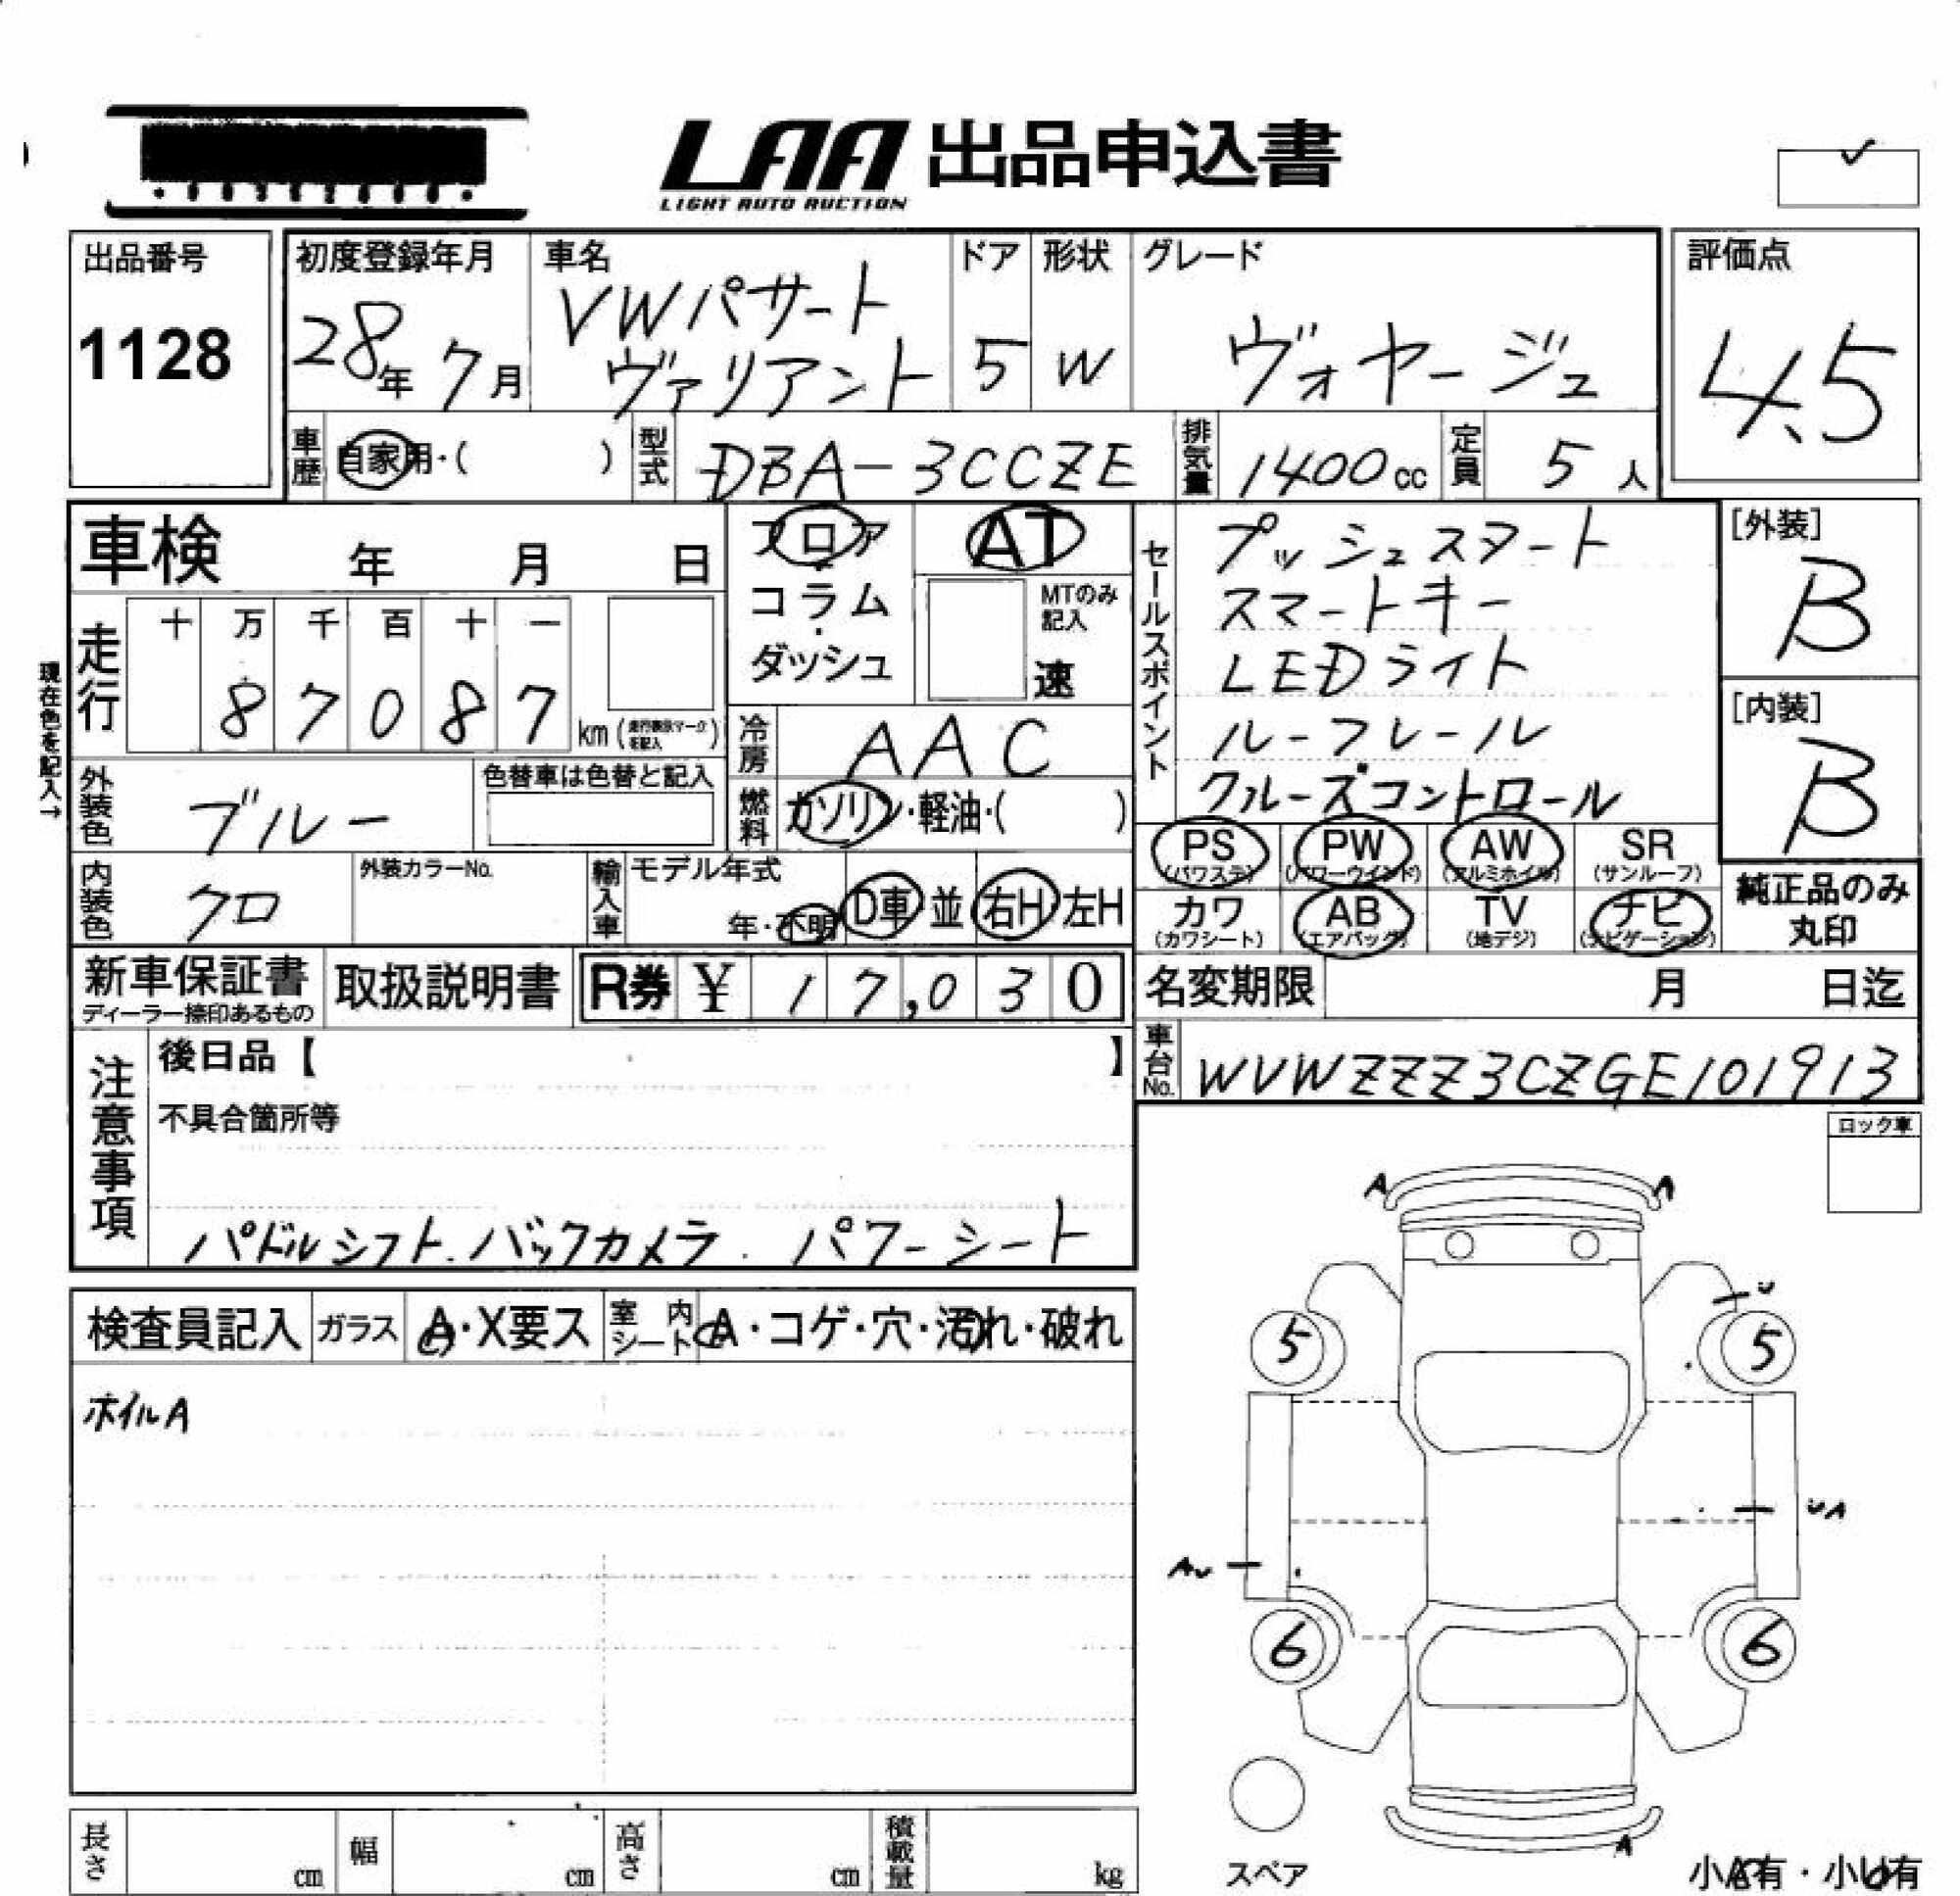 LAA 出品申込書
LIGHT AUTO AUCTION
出品番号
1128
初度登録年月
28年 7月
車名
VWパサート
ヴァリアント
ドア
5
形状
W
グレード
ヴォヤージュ
評価点
4.5
車歴 自家用・( )
型式 DBA-3CCZE
排気量 1400cc
定員 5人
車検 年 月 日
現在色を記入→
走行 十 万 千 百 十 一
87087 km(走行表示マークを記入)
フロア
コラム
ダッシュ
AT
MTのみ記入
速
冷房 AAC
燃料 ガソリン・軽油・( )
セールスポイント
プッシュスタート
スマートキー
LEDライト
ルーフレール
クルーズコントロール
[外装]
B
[内装]
B
外装色 ブルー
色替車は色替と記入
内装色 クロ
外装カラーNo.
輸入車 モデル年式
年・不明 D車 並 右H 左H
PS (パワステ)
PW (パワーウインド)
AW (アルミホイル)
SR (サンルーフ)
カワ (カワシート)
AB (エアバッグ)
TV (地デジ)
ナビ (ナビゲーション)
純正品のみ
丸印
新車保証書
ディーラー捺印あるもの
取扱説明書
R券 ¥ 17,030
名変期限 月 日迄
車台No. WVWZZZ3CZGE101913
注意事項
後日品【 】
不具合箇所等
パドルシフト. バックカメラ. パワーシート
ロック車
検査員記入 ガラス A・X要ス 室内シート A・コゲ・穴・汚れ・破れ
ホイルA
A A
U
5 5
UA
AU
6 6
A
スペア
小A有・小U有
長さ cm 幅 cm 高さ cm 積載量 kg